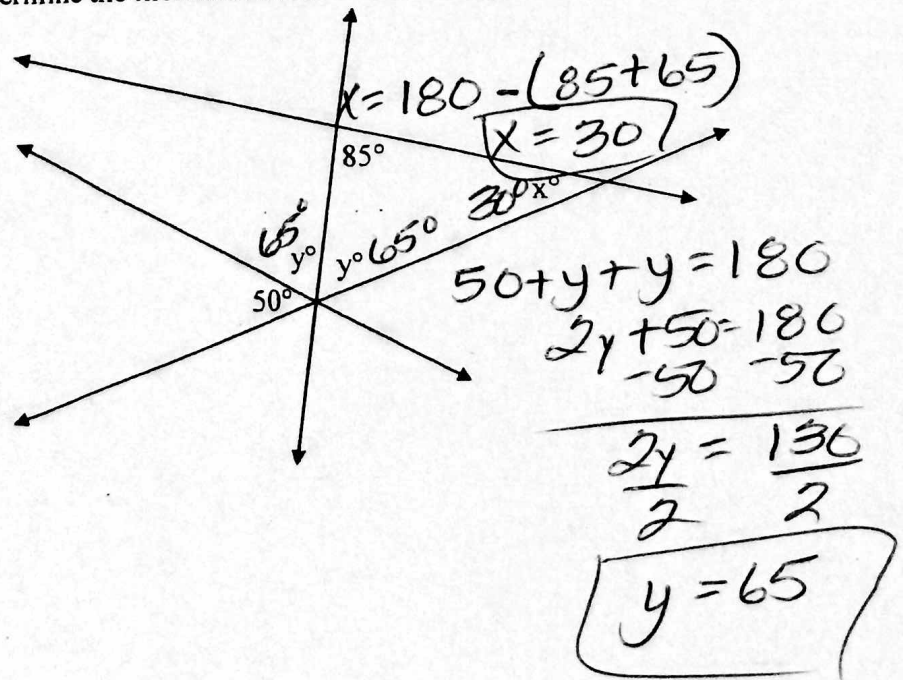 x = 180 - (85+65)
x = 30
85°
30° x°
65°
y°
y° 65°
50°
50+y+y=180
2y+50=180
-50 -50
2y = 130
2 2
y = 65